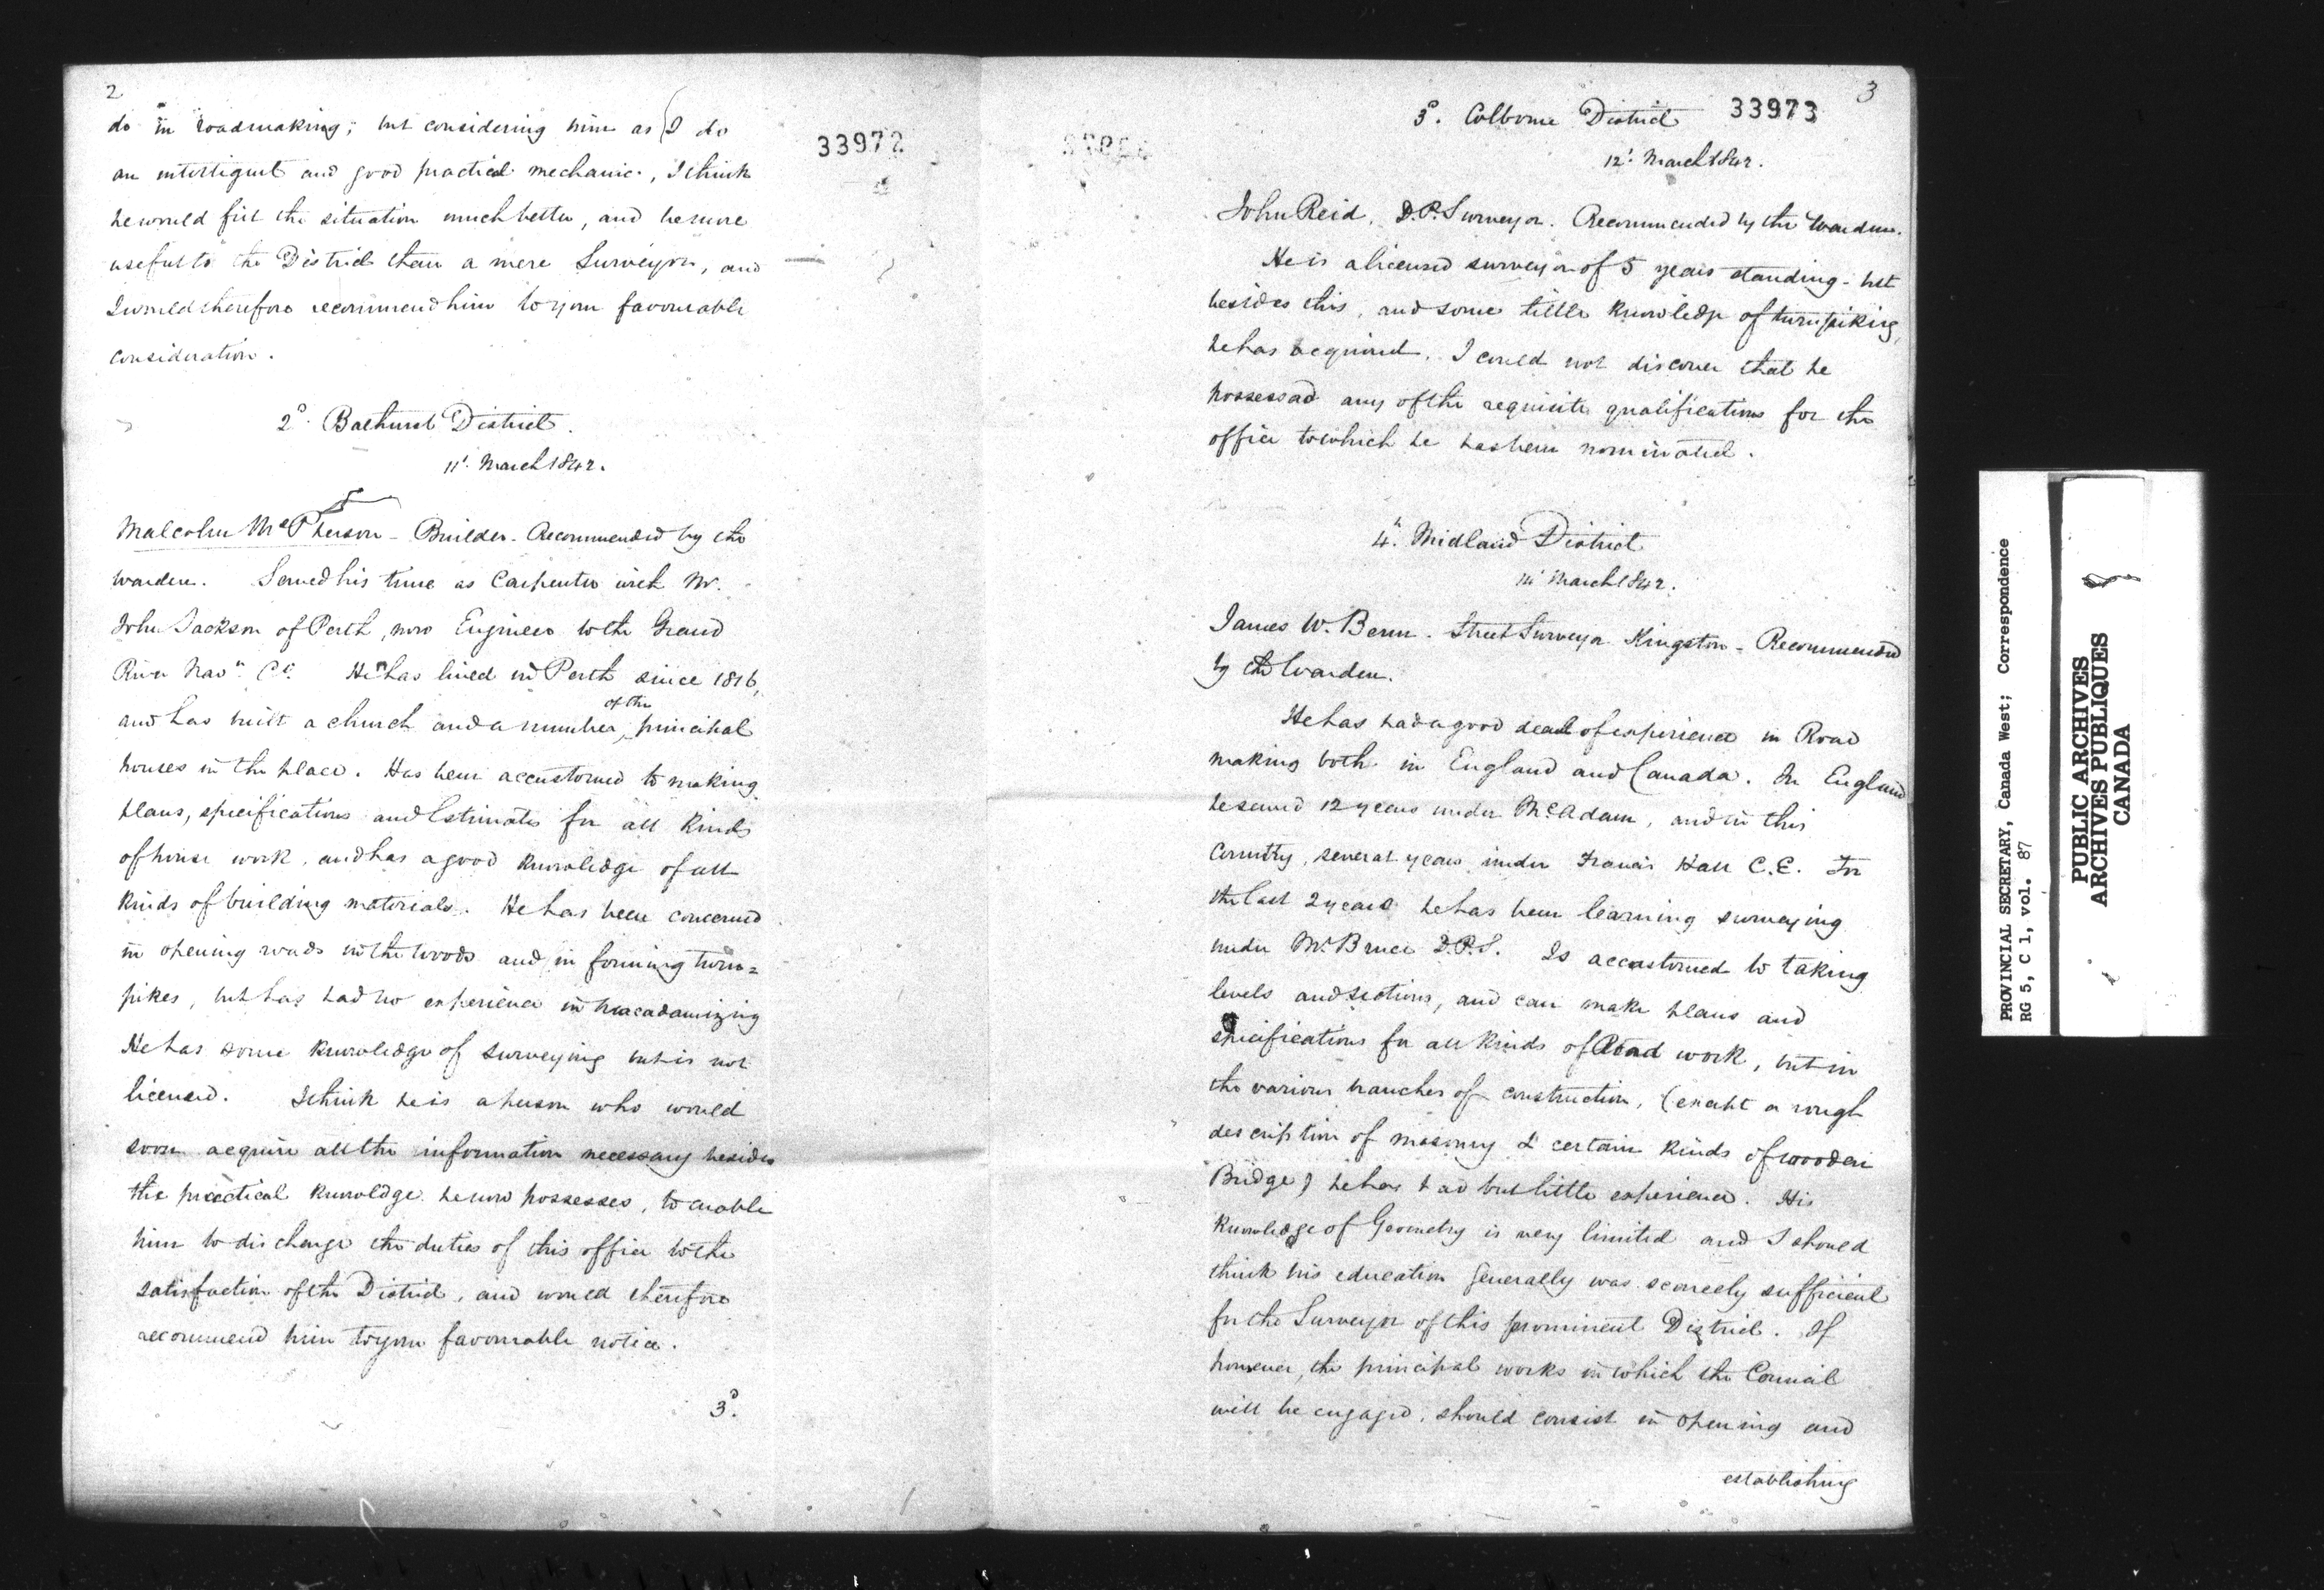 2
do in roadmaking; but considering him as I do
an intelligent and good practical mechanic, I think
he would fill the situation much better, and be more
useful to the District than a mere Surveyor, and
I would therefore recommend him to your favourable
consideration.
33972
2d. Bathurst District.
11' March 1842.
Malcolm McPherson - Builder - Recommended by the
Warden. Served his time as Carpenter with Mr.
John Jackson of Perth, now Engineer to the Grand
River Navn. Co. He has lived in Perth since 1816,
and has built a church and a number of the principal
houses in the place. Has been accustomed to making
plans, specifications and Estimates for all kinds
of house work, and has a good knowledge of all
kinds of building materials. He has been concerned
in opening roads in the woods and in forming turn=
pikes, but has had no experience in macadamizing
He has some knowledge of surveying but is not
licensed. I think he is a person who would
soon acquire all the information necessary besides
the practical knowldge he now possesses, to enable
him to discharge the duties of this office to the
satisfaction of the District, and would therefore
recommend him to your favourable notice.
3d.
3
3d. Colborne District
33973
12' March 1842.
John Reid, D.P. Surveyor. Recommended by the Warden.
He is a licensed surveyor of 5 years standing - but
besides this, and some little knowledge of turnpiking,
he has acquired, I could not discover that he
possessed any of the requisite qualifications for the
office to which he has been nominated.
4h. Midland District
11' March 1842.
James W. Benn. Street Surveyor Kingston - Recommended
by the Warden.
He has had a good deal of experience in Road
making both in England and Canada. In England
he served 12 years under McAdam, and in this
Country, several years under Francis Hall C.E. For
the last 2 years he has been learning surveying
under Mr. Bruce D.P.S. Is accustomed to taking
levels and sections, and can make plans and
specifications for all kinds of Road work, but in
the various branches of construction, (except a rough
description of masonry & certain kinds of wooden
Bridge) he has had but little experience. His
knowledge of Geometry is very limited and I should
think his education generally was scarcely sufficient
for the Surveyor of this prominent District. If
however, the principal works in which the Council
will be engaged, should consist in opening and
establishing
PROVINCIAL SECRETARY, Canada West; Correspondence
RG 5, C 1, vol. 87
PUBLIC ARCHIVES
ARCHIVES PUBLIQUES
CANADA